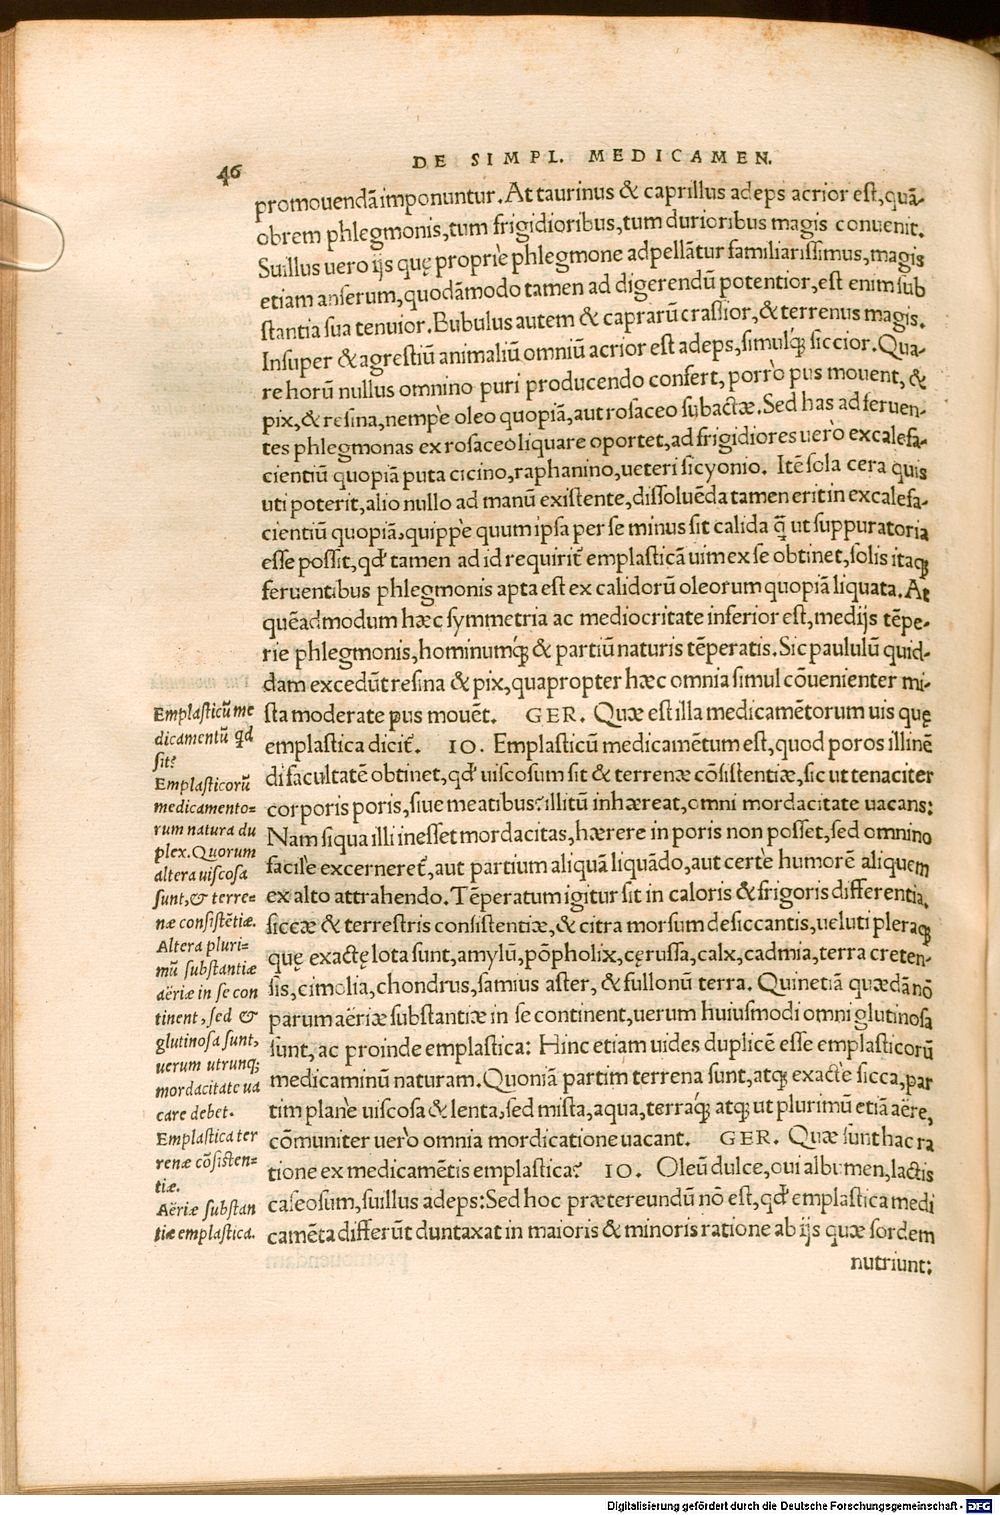 46
DE SIMPL. MEDICAMEN.
promouendā imponuntur. At taurinus & caprillus adeps acrior est, quā-
obrem phlegmonis, tum frigidioribus, tum durioribus magis conuenit.
Suillus uero ijs quę propriè phlegmone adpellātur familiarissimus, magis
etiam anserum, quodāmodo tamen ad digerendū potentior, est enim sub
stantia sua tenuior. Bubulus autem & caprarū crassior, & terrenus magis.
Insuper & agrestiū animaliū omniū acrior est adeps, simulq́; siccior. Qua-
re horū nullus omnino puri producendo confert, porrò pus mouent, &
pix, & resina, nempè oleo quopiā, aut rosaceo subactæ. Sed has ad feruen-
tes phlegmonas ex rosaceo liquare oportet, ad frigidiores uerò excalefa-
cientiū quopiā puta cicino, raphanino, ueteri sicyonio. Itē sola cera quis
uti poterit, alio nullo ad manū existente, dissoluēda tamen erit in excalefa-
cientiū quopiā, quippè quum ipsa per se minus sit calida q̄ ut suppuratoria
esse possit, qd' tamen ad id requirit̃ emplasticā uim ex se obtinet, solis itaq;
feruentibus phlegmonis apta est ex calidorū oleorum quopiā liquata. At
quēadmodum hæc symmetria ac mediocritate inferior est, medijs tēpe-
rie phlegmonis, hominumq́; & partiū naturis tēperatis. Sic paululū quid-
dam excedūt resina & pix, quapropter hæc omnia simul cōuenienter mi-
sta moderate pus mouēt. GER. Quæ est illa medicamētorum uis quę
emplastica dicit̃. IO. Emplasticū medicamētum est, quod poros illinē
di facultatē obtinet, qd' uiscosum sit & terrenæ cōsistentiæ, sic ut tenaciter
corporis poris, siue meatibus illitū inhæreat, omni mordacitate uacans:
Nam siqua illi inesset mordacitas, hærere in poris non posset, sed omnino
facilè excerneret̃, aut partium aliquā liquādo, aut certè humorē aliquem
ex alto attrahendo. Tēperatum igitur sit in caloris & frigoris differentia,
siccæ & terrestris consistentiæ, & citra morsum desiccantis, ueluti pleraq;
quę exactę lota sunt, amylū, pōpholix, cęrussa, calx, cadmia, terra creten-
sis, cimolia, chondrus, samius aster, & fullonū terra. Quinetiā quædā nō
parum aëriæ substantiæ in se continent, uerum huiusmodi omni glutinosa
sunt, ac proinde emplastica: Hinc etiam uides duplicē esse emplasticorū
medicaminū naturam. Quoniā partim terrena sunt, atq; exactè sicca, par
tim planè uiscosa & lenta, sed mista, aqua, terraq́; atq; ut plurimū etiā aëre,
cōmuniter uerò omnia mordicatione uacant. GER. Quæ sunt hac ra
tione ex medicamētis emplastica? IO. Oleū dulce, oui albumen, lactis
caseosum, suillus adeps: Sed hoc prætereundū nō est, qd' emplastica medi
camēta differūt duntaxat in maioris & minoris ratione ab ijs quæ sordem
nutriunt:
Emplasticū me
dicamentū qd
sit?
Emplasticorū
medicamento=
rum natura du
plex. Quorum
altera uiscosa
sunt, & terre=
næ consistētiæ.
Altera pluri=
mū substantiæ
aëriæ in se con
tinent, sed &
glutinosa sunt,
uerum utrunq;
mordacitate ua
care debet.
Emplastica ter
renæ cōsisten=
tiæ.
Aëriæ substan
tiæ emplastica.
Digitalisierung gefördert durch die Deutsche Forschungsgemeinschaft - DFG